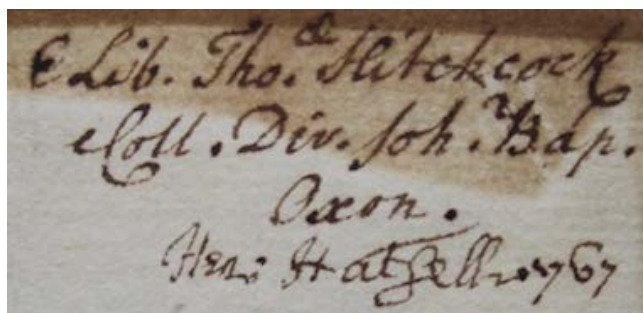 E Lib. Tho.æ Hitchcock
e Coll. Div. Joh.s Bap.
Oxon.
Hen: Hatsell 1767